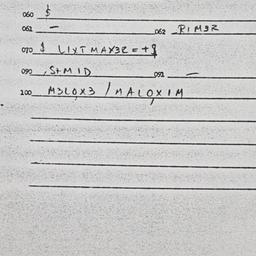 060 $
061 – 062 RIM32
070 $ LIXTMAX3Z=+$
090 ,S+MID 091 –
100 M3LOX3/MALOXIM